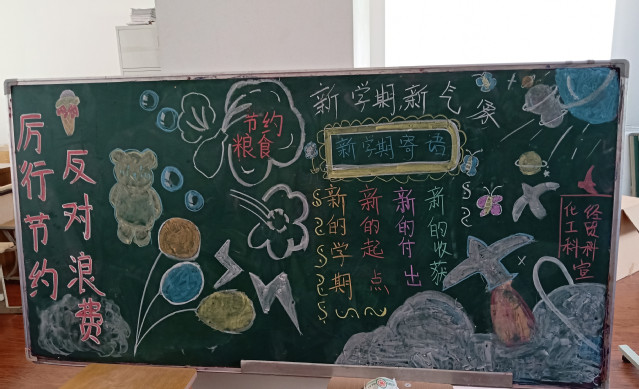 厉行节约
反对浪费
节约
粮食
新学期新气象
新学期寄语
新的学期
新的起点
新的付出
新的收获
化工科